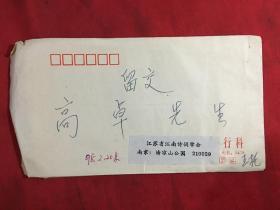 留交
高卓先生
95.2.20来
江苏省江南诗词学会
南京：清凉山公园 210029
行科